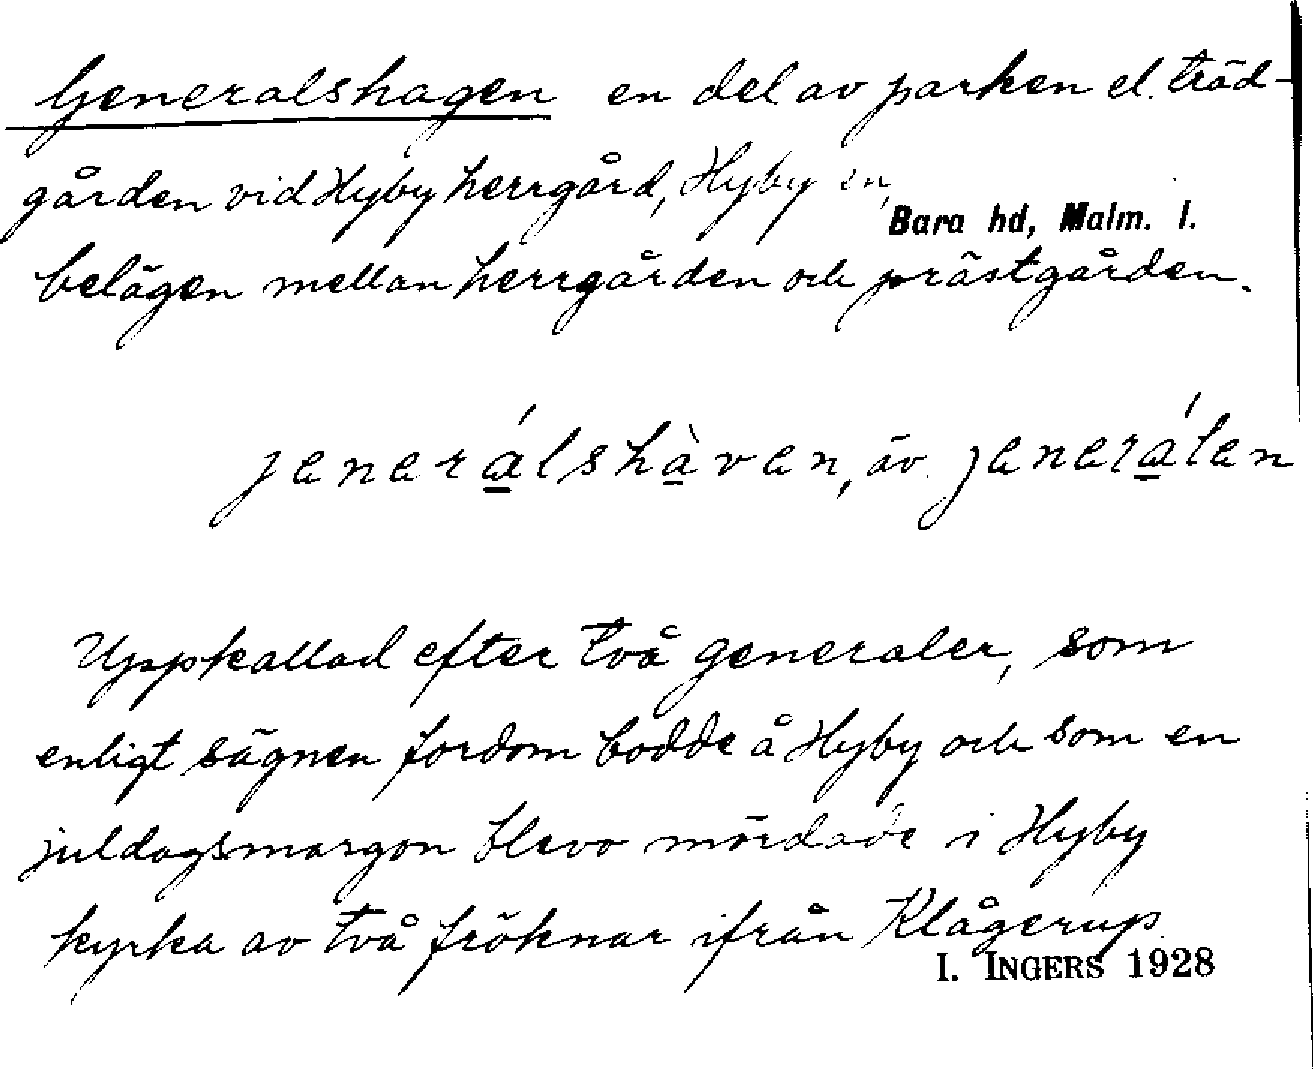 Generalshagen en del av parken el. träd-
gården vid Hyby herrgård, Hyby sn,
Bara hd, Malm. l.
belägen mellan herrgården och prästgården.
jenerálshàven, äv. jenerálen
Uppkallad efter två generaler, som
enligt sägnen fordom bodde å Hyby och som en
juldagsmorgon blevo mördade i Hyby
kyrka av två fröknar ifrån Klågerup.
I. INGERS 1928